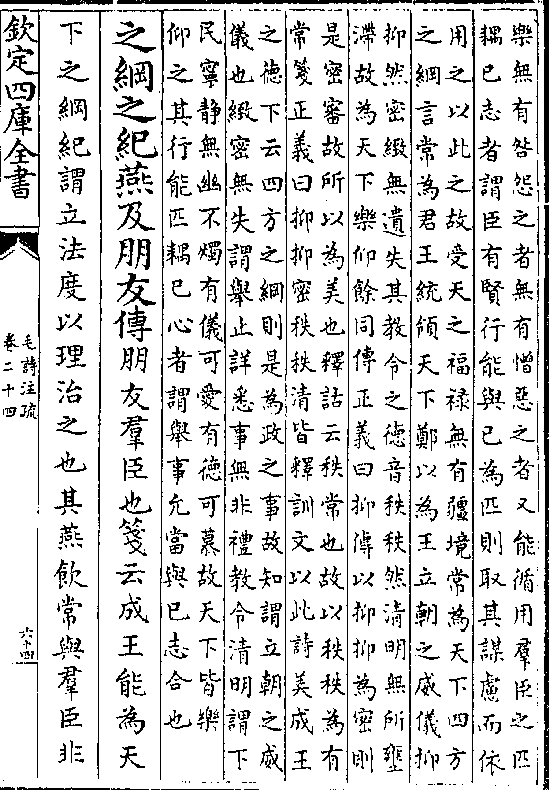 樂無有咎怨之者無有憎惡之者又能循用羣臣之匹
耦已志者謂臣有賢行能與已為匹則取其謀慮而依
用之以此之故受天之福禄無有疆境常為天下四方
之綱言常為君王統領天下鄭以為王立朝之威儀抑
抑然密緻無遺失其教令之德音秩秩然清明無所壅
滯故為天下樂仰餘同傳正義曰抑傳以抑抑為密則
是密審故所以為美也釋詁云秩常也故以秩秩為有
常箋正義曰抑抑密秩秩清皆釋訓文以此詩美成王
之德下云四方之綱則是為政之事故知謂立朝之威
儀也緻密無失謂舉止詳悉事無非禮教令清明謂下
民寧静無幽不燭有儀可愛有德可慕故天下皆樂
仰之其行能匹耦已心者謂舉事允當與已志合也
之綱之紀燕及朋友傳朋友羣臣也箋云成王能為天
下之綱紀謂立法度以理治之也其燕飲常與羣臣非
欽定四庫全書
毛詩注疏
卷二十四
六十四